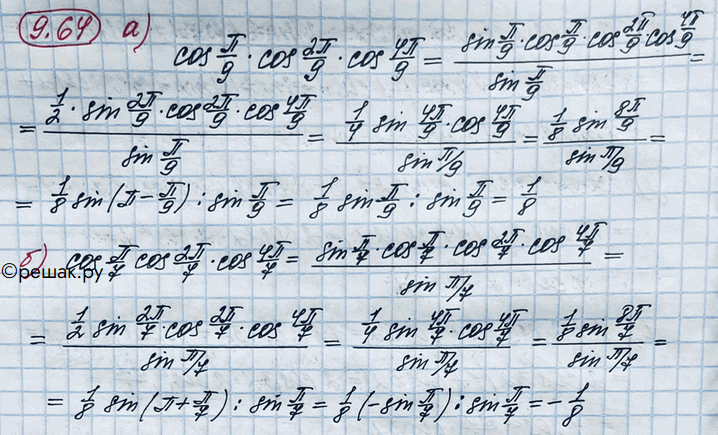 9.64 а) cos π/9 · cos 2π/9 · cos 4π/9 = (sin π/9 · cos π/9 · cos 2π/9 cos 4π/9) / (sin π/9) =
= (1/2 · sin 2π/9 · cos 2π/9 · cos 4π/9) / (sin π/9) = (1/4 sin 4π/9 · cos 4π/9) / (sin π/9) = (1/8 sin 8π/9) / (sin π/9) =
= 1/8 sin(π - π/9) : sin π/9 = 1/8 sin π/9 : sin π/9 = 1/8
б) cos π/7 cos 2π/7 · cos 4π/7 = (sin π/7 · cos π/7 · cos 2π/7 · cos 4π/7) / (sin π/7) =
©решак.ру
= (1/2 sin 2π/7 · cos 2π/7 · cos 4π/7) / (sin π/7) = (1/4 sin 4π/7 · cos 4π/7) / (sin π/7) = (1/8 sin 8π/7) / (sin π/7) =
= 1/8 sin(π + π/7) : sin π/7 = 1/8 (-sin π/7) : sin π/7 = - 1/8